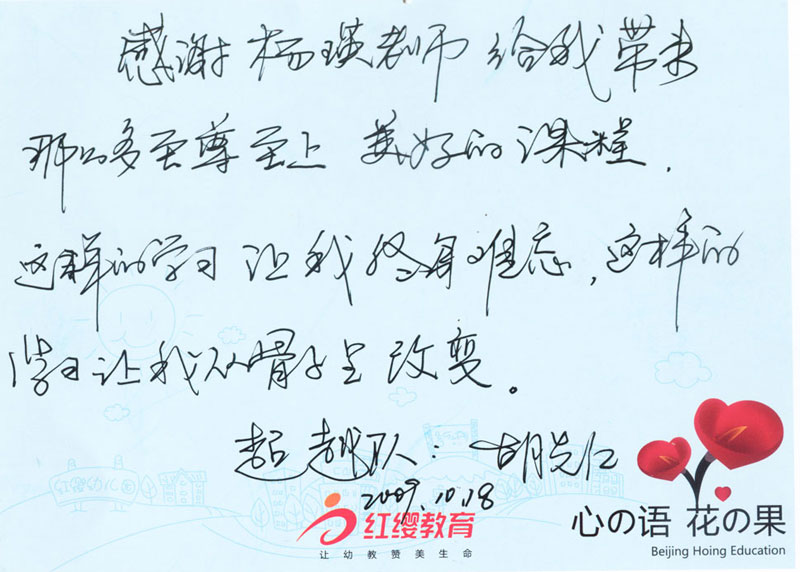 感谢杨瑛老师给我带来
那么多至尊至上 美好的课程,
这样的学习让我终身难忘,这样的
学习让我从骨子里改变。
超越队: 胡先仁
2009.10.18
红缨教育
让幼教赞美生命
心の语 花の果
Beijing Hoing Education
红缨幼儿园